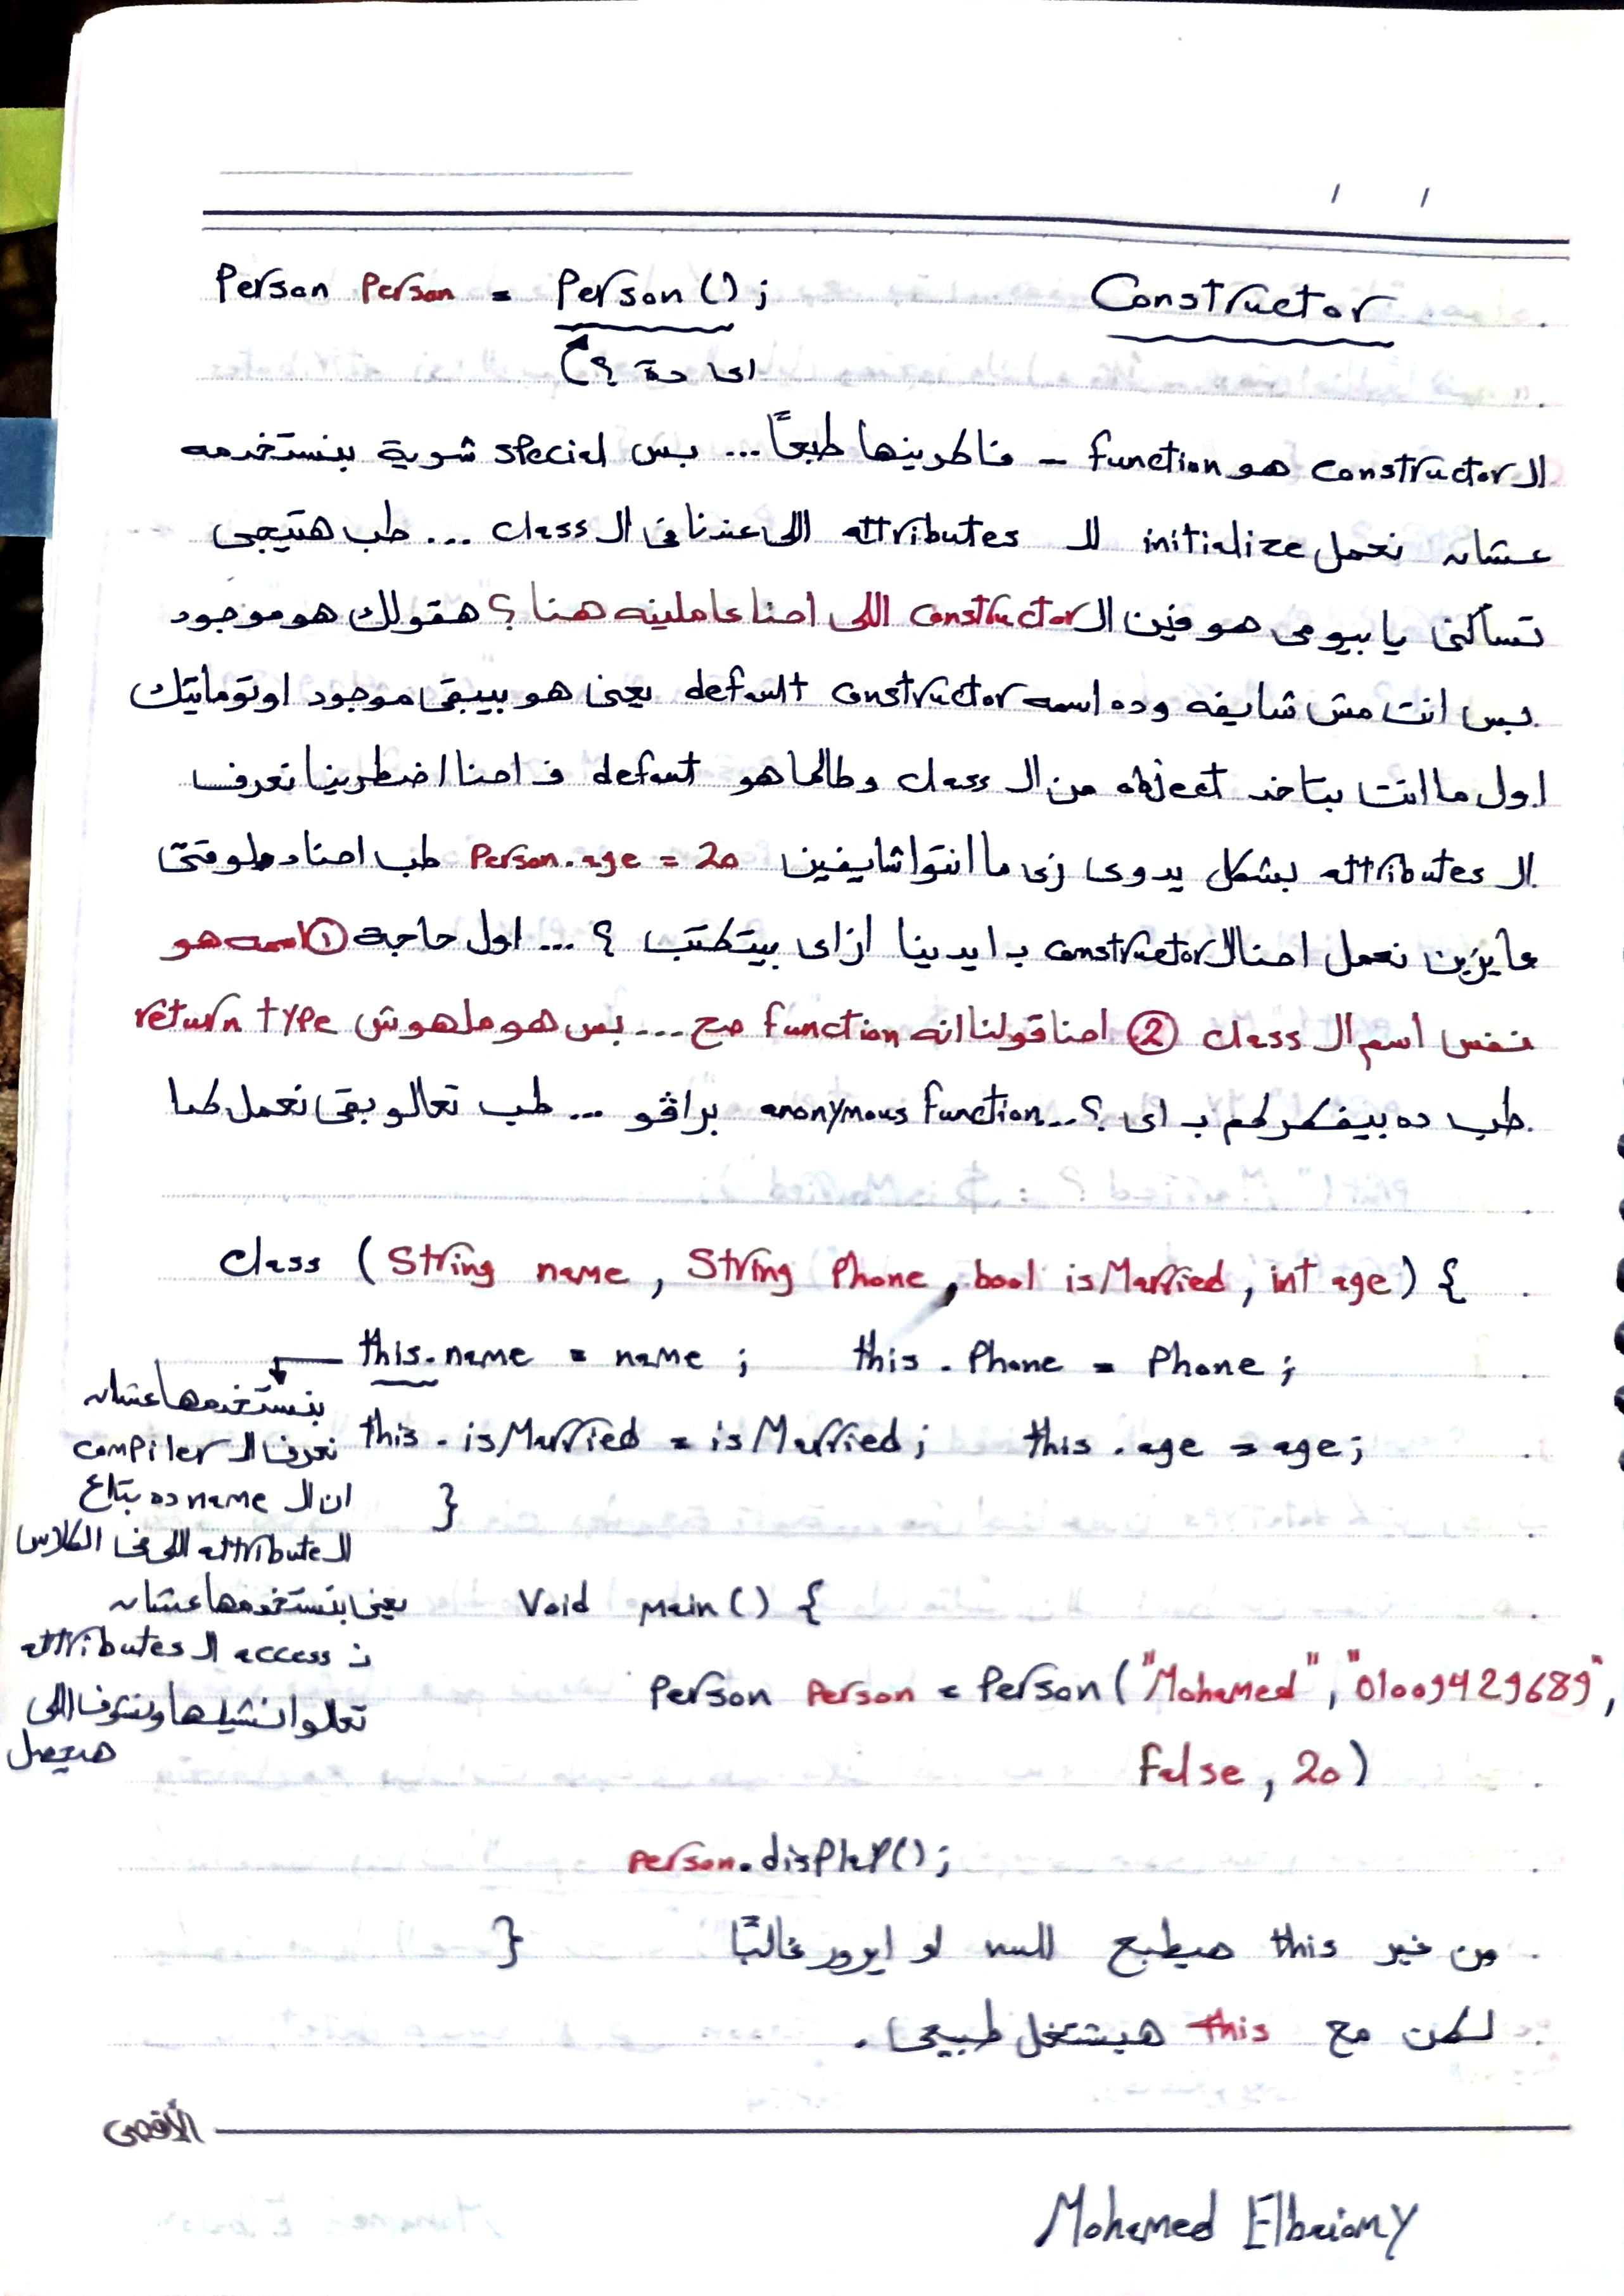 / /
Constructor
Person Person = Person();
اى دة ؟
الـ constructor هو function – فاكرينها طبعًا... بس special شوية بنستخدمه
عشان نعمل initialize للـ attributes اللى عندنا فى الـ class ... طب هتيجى
تسألنى يا بيومى هو فين الـ constructor اللى احنا عاملينه هنا ؟ هقولك هو موجود
بس انت مش شايفه وده اسمه default constructor يعنى هو بيبقى موجود اوتوماتيك
اول ما انت بتاخد object من الـ class وطالما هو defaut فـ احنا اضطرينا نعرف
الـ attributes بشكل يدوى زى ما انتوا شايفين Person.age = 20 طب احنا دلوقتى
عايزين نعمل احنا الـ constructor بـ ايدينا ازاى بيتكتب ؟ ... اول حاجه ① اسمه هو
نفس اسم الـ class ② احنا قولنا انه function صح ... بس هو ملهوش return type
طب ده بيفكركم بـ اى ؟... anonymous function براڤو ... طب تعالو بقى نعمل كدا
class (String name, String Phone, bool isMarried, int age) {
this.name = name; this.Phone = Phone;
this.isMarried = isMarried; this.age = age;
}
بنستخدمها عشان
نعرف الـ compiler
ان الـ name ده بتاع
الـ attribute اللى فى الكلاس
يعنى بنستخدمها عشان
نـ access الـ attributes
تعالوا نشيلها ونشوف اللى
هيحصل
Void main() {
Person Person = Person("Mohamed", "01009429689",
False, 20)
Person.display();
}
من غير this هيطبع null او ايرور غالبًا
لكن مع this هيشتغل طبيعى.
الأقصى
Mohamed Elbaiomy